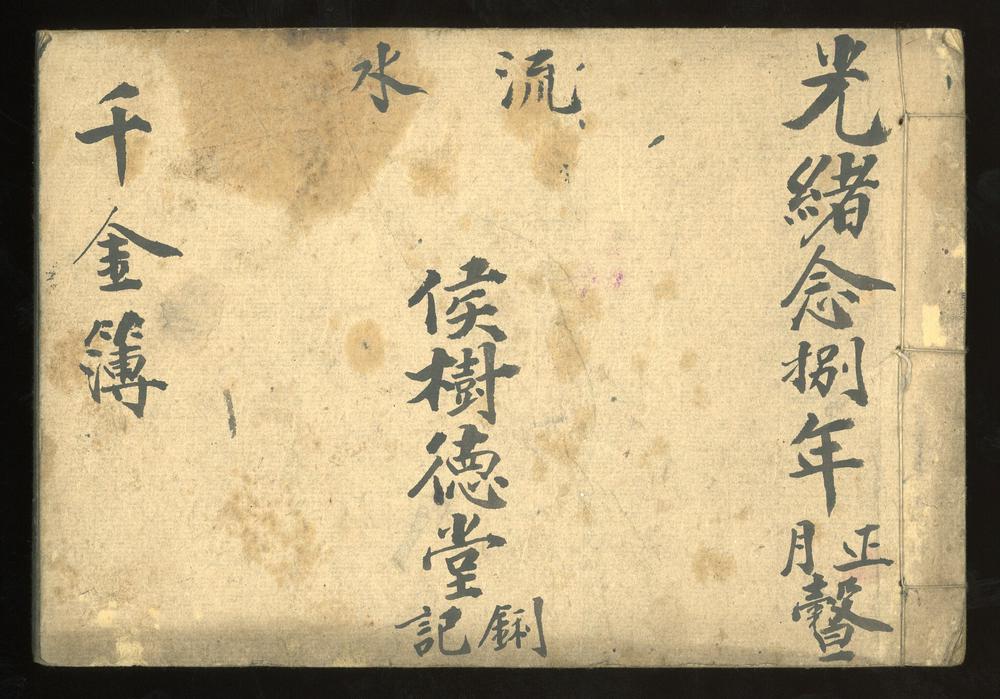 光緒念捌年正月
流水
侯樹德堂
記
千金簿